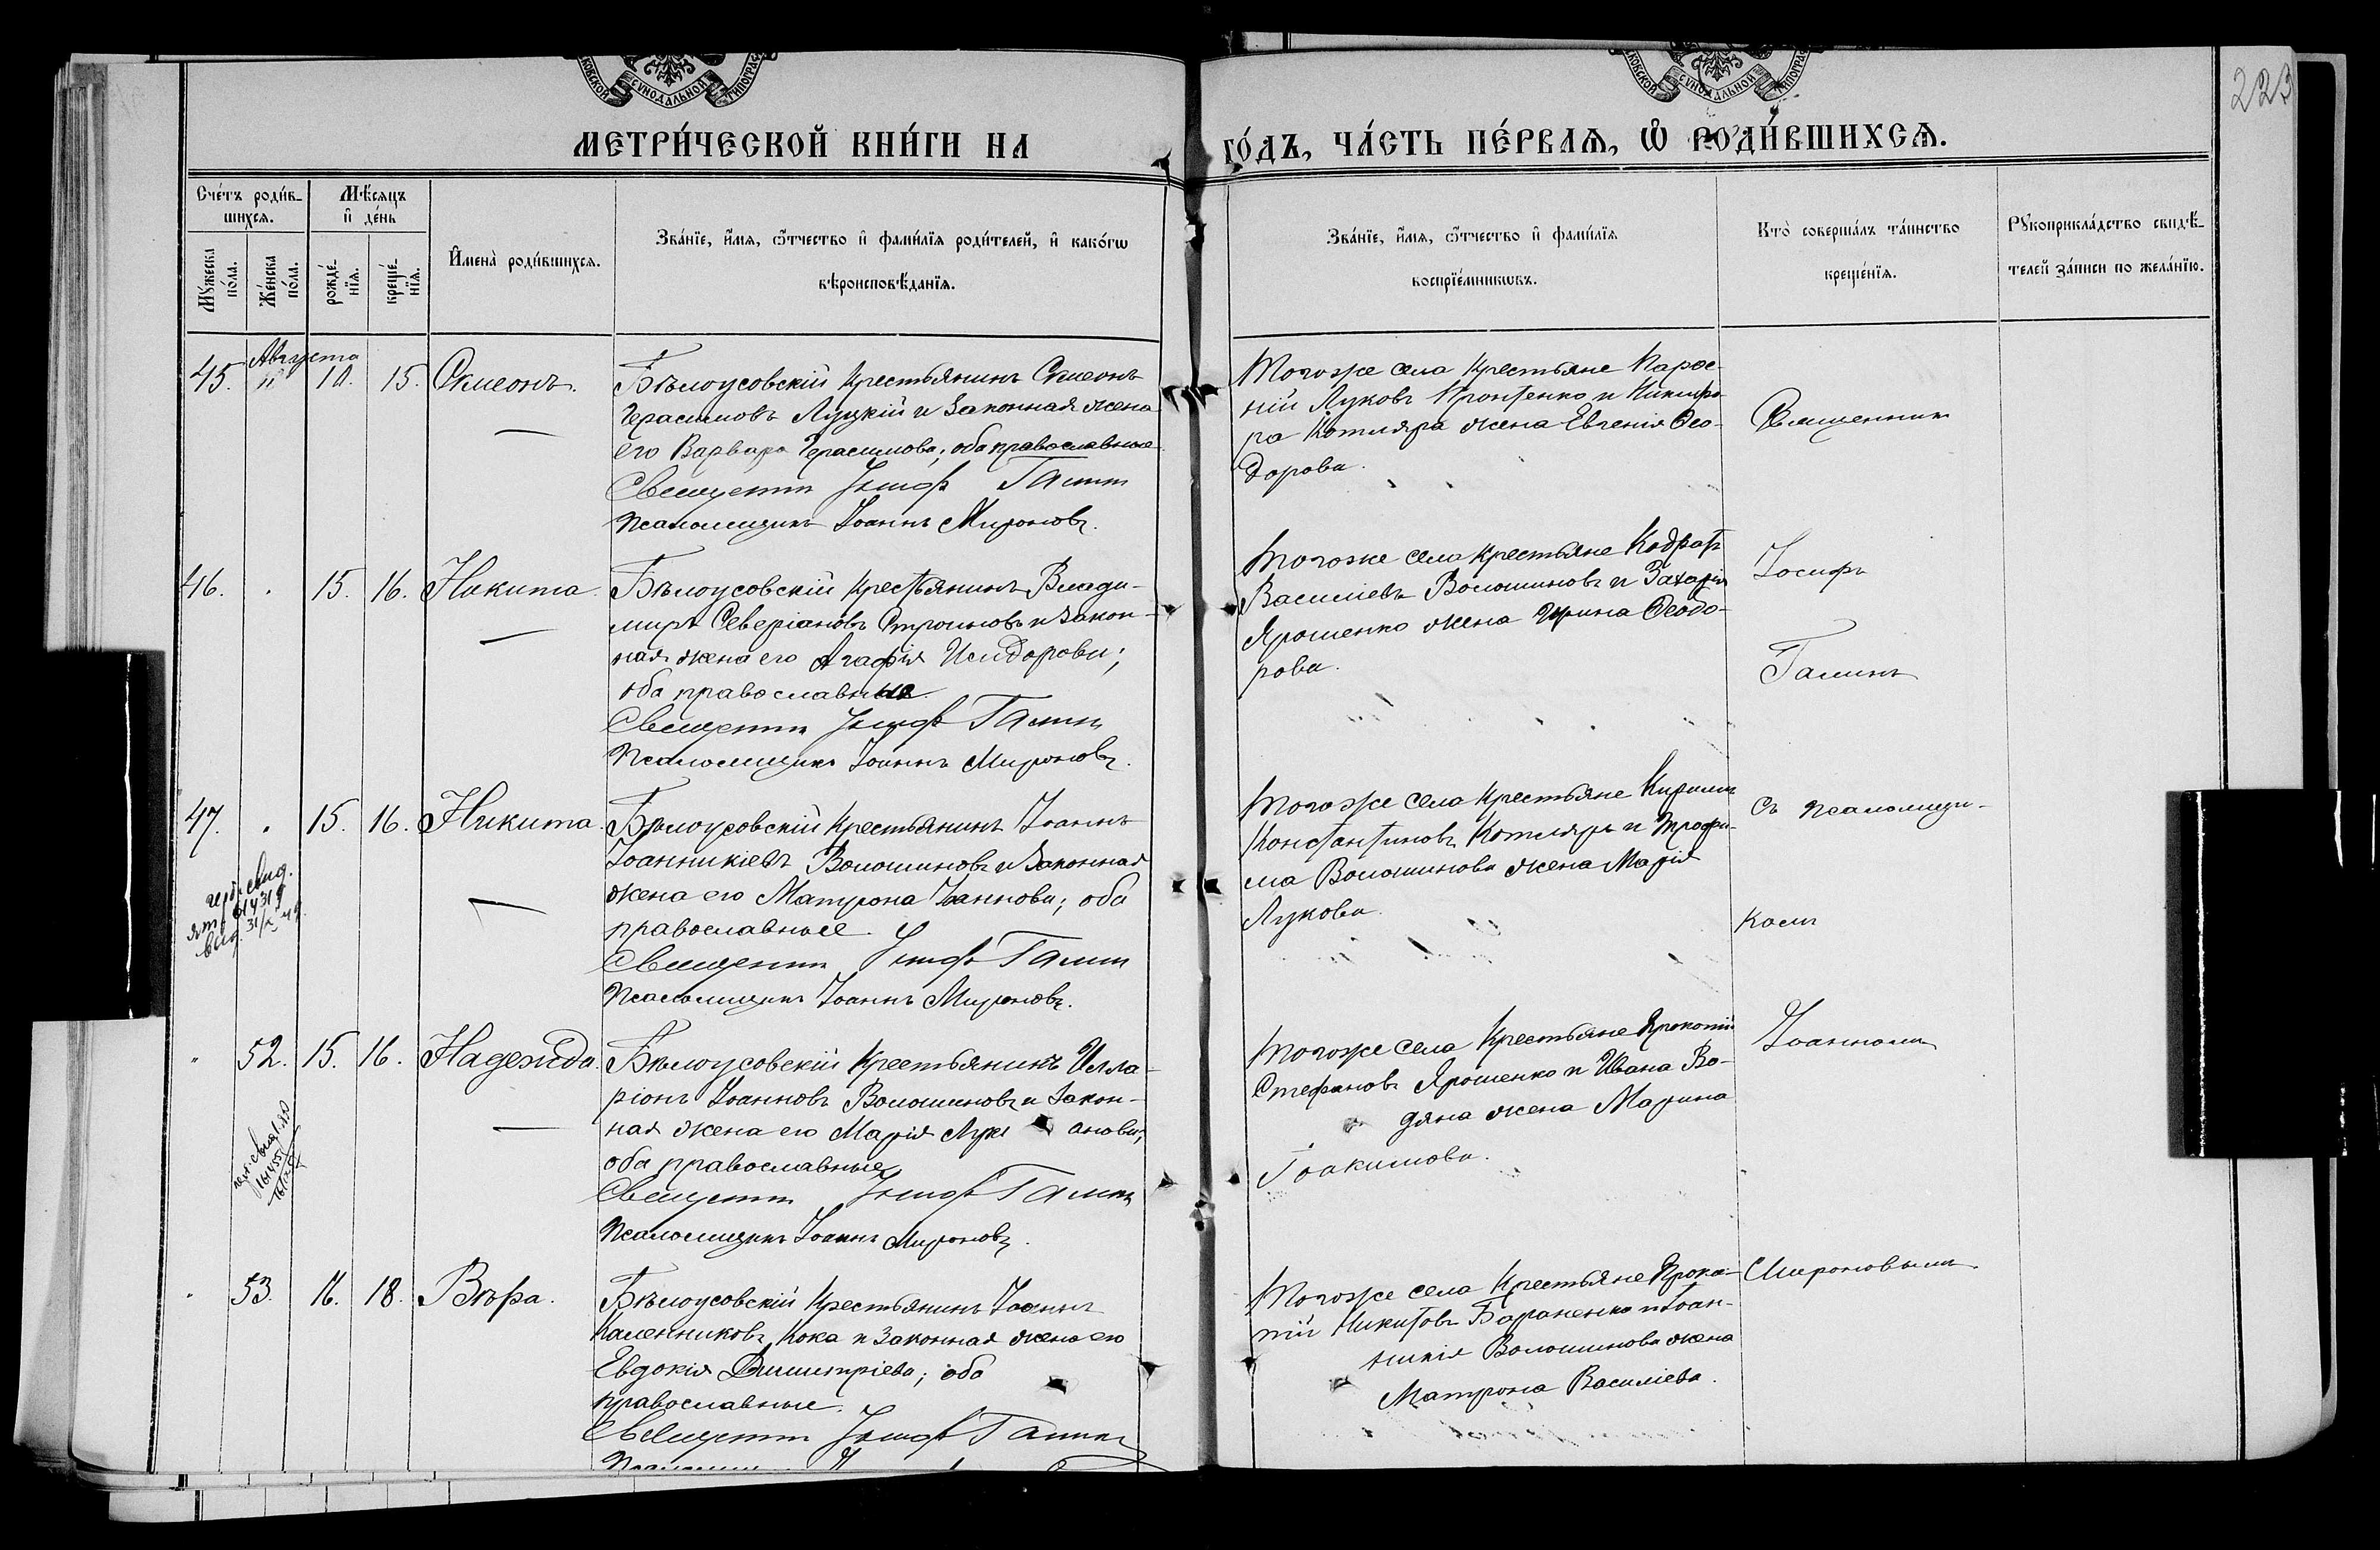 223
МЕТРИ́ЧЕСКОЙ КНИ́ГИ НА ГО́ДЪ, ЧА́СТЬ ПЕ́РВАЯ, Ѡ РОДИ́ВШИХСЯ.
Сче́тъ роди́в-
шихся.
Мѣ́сяцъ
и҆ де́нь
Мꙋ́жеска
по́ла.
Же́нска
по́ла.
рожде́-
нїя.
креще́-
нїя.
И҆мена̀ роди́вшихся.
Зва́нїе, и҆́мя, ѻ҆́тчество и҆ фами́лїя роди́телей, и҆ како́гѡ
вѣроисповѣ́данїя.
Зва́нїе, и҆́мя, ѻ҆́тчество и҆ фами́лїя
воспрїе́мникѡвъ.
Кто̀ соверша́лъ та́инство
креще́нїя.
Рꙋкоприкла́дство свидѣ́-
телей за́писи по жела́нїю.
Августа
45. " 10. 15. Симеонъ.
Бѣлоусовскій крестьянинъ Симеонъ
Герасимовъ Луцкій и законная жена
его Варвара Герасимова; оба православные
Священникъ Іосифъ Галинъ
Псаломщикъ Іоаннъ Мироновъ.
Того же села крестьяне
Луковъ и Никифо-
ра Котляра жена Евгенія Ѳео-
дорова.
Священникъ
46. 15. 16. Никита.
Бѣлоусовскій крестьянинъ Влади-
миръ Северіановъ Строиновъ и закон-
ная жена его Агафія Исидорова;
оба православные
Священникъ Іосифъ Галинъ
Псаломщикъ Іоаннъ Мироновъ.
Того же села крестьяне Кодратъ
Василіевъ Волошиновъ и Захарія
Ярошенко жена Ирина Ѳеодо-
рова.
Іосифъ
Галинъ
47. 15. 16. Никита.
Бѣлоусовскій крестьянинъ Іоаннъ
Іоанникіевъ Волошиновъ и законная
жена его Матрона Іоаннова; оба
православные.
Священникъ Іосифъ Галинъ
Псаломщикъ Іоаннъ Мироновъ.
Того же села крестьяне Кириллъ
Константиновъ Котляръ и Трофи-
ма Волошинова жена Марія
Лукова.
съ псаломщи-
комъ
" 52. 15. 16. Надежда.
Бѣлоусовскій крестьянинъ Илла-
ріонъ Іоанновъ Волошиновъ и закон-
ная жена его Марія Лукіанова;
оба православные
Священникъ Іосифъ Галинъ
Псаломщикъ Іоаннъ Мироновъ.
Того же села крестьяне Прокопій
Стефановъ Ярошенко и Ивана Во-
дяна жена Марина
Іоакимова.
Іоанномъ
53. 16. 18. Вѣра.
Бѣлоусовскій крестьянинъ Іоаннъ
Каленниковъ Кока и законная жена его
Евдокія Димитріева; оба
православные.
Священникъ Іосифъ Галинъ
Того же села крестьяне Проко-
пій Никитовъ Бараненко и Іоан-
никія Волошинова жена
Матрона Василіева.
Мироновымъ